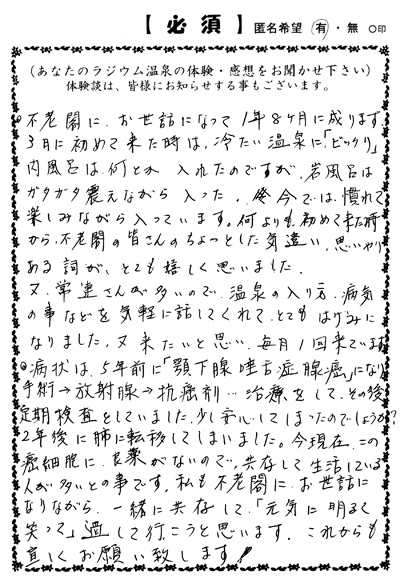 【必須】 匿名希望 有・無 ○印
(あなたのラジウム温泉の体験・感想をお聞かせ下さい)
体験談は、皆様にお知らせする事もございます。
不老閣に、お世話になって1年8ヶ月に成ります。
3月に初めて来た時は、冷たい温泉に「ビックリ」
内風呂は何とか入れたのですが、岩風呂は
ガタガタ震えながら入った。今では、慣れて
楽しみながら入っています。何よりも初めて来た時
から、不老閣の皆さんのちょっとした気遣い、思いやり
ある詞が、とても嬉しく思いました。
又、常連さんが多いので、温泉の入り方、病気
の事などを気軽に話してくれて、とてもはげみに
なりました。又来たいと思い、毎月1回来ています
病状は、5年前に「顎下腺唾石症腺癌」になり
手術→放射線→抗癌剤…治療をして、その後
定期検査をしていました。少し安心してしまったのでしょうか?
2年後に肺に転移してしまいました。今現在、この
癌細胞に、良薬がないので、共存して生活している
人が多いとの事です。私も不老閣に、お世話に
なりながら、一緒に共存して、「元気に明るく
笑って」過して行こうと思います。これからも
宜しくお願い致します!